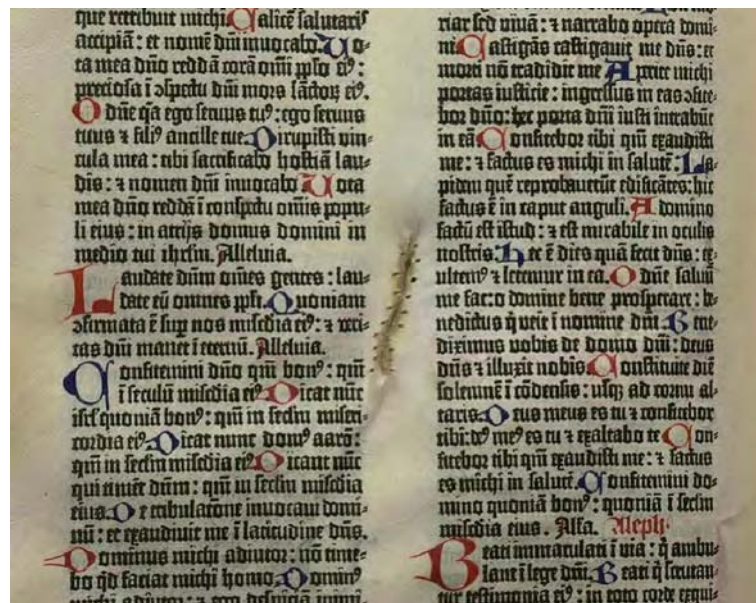 que retribuit michi Calicē salutaris
accipiā : et nomē dn̄i inuocabo. Vo-
ta mea dn̄o reddā corā om̄i pp̄lo eiꝰ :
preciosa ī ꝯspectu dn̄i mors sāctoꝝ eiꝰ.
O dn̄e q̄a ego seruus tuꝰ : ego seruus
tuus ⁊ filiꝰ ancille tue Dirupisti vin-
cula mea : tibi sacrificabo hostiā lau-
dis : ⁊ nomen dn̄i inuocabo Vota
mea dn̄o reddā ī conspectu om̄is popu-
li eius : in atrijs domus domini in
medio tui ihrl̄m. Alleluia.
Laudate dn̄m om̄es gentes : lau-
date eū omnes pp̄li. Quoniam
ꝯfirmata ē sup̱ nos mīscd̄ia eiꝰ : ⁊ veri-
tas dn̄i manet ī eternū. Alleluia.
Confitemini dn̄o qm̄ bonꝰ : qm̄
ī seculū mīscd̄ia eiꝰ Dicat nūc
isrl̄ quoniā bonꝰ : qm̄ in secl̄m miseri-
cordia eiꝰ Dicat nunc domꝰ aarō :
qm̄ in secl̄m mīscd̄ia eiꝰ Dicant nūc
qui timēt dn̄m : qm̄ in secl̄m mīscd̄ia
eius De tribulatōne inuocaui domi-
nū : et exaudiuit me ī latitudine dn̄s.
Dominus michi adiutor : nō time-
bo qd̄ faciat michi homo Dominꝰ
michi adiutor : ⁊ ego despiciā inimi-
riar sed viuā : ⁊ narrabo opera domi-
ni Castigās castigauit me dn̄s : et
morti nō tradidit me Aperite michi
portas iusticie : ingressus in eas ꝯfite-
bor dn̄o : hec porta dn̄i iusti intrabūt
in eā Confitebor tibi qm̄ exaudisti
me : ⁊ factus es michi in salutē : La-
pidem quē reprobauerūt edificātes : hic
factus ē in caput anguli. A domino
factū est istud : ⁊ est mirabile in oculis
nostris. Hec ē dies quā fecit dn̄s : ex-
ultemꝰ ⁊ letemur in ea. O dn̄e saluū
me fac : o domine bene prosperare : be-
nedictus q̇ venit ī nomine dn̄i Bene-
diximus vobis de domo dn̄i : deus
dn̄s ⁊ illuxit nobis Constituite diē
solemnē ī cōdensis : usq̇ ad cornu al-
taris Deus meus es tu ⁊ confitebor
tibi : deꝰ meꝰ es tu ⁊ exaltabo te Con-
fitebor tibi qm̄ exaudisti me : ⁊ factus
es michi in salutē. Confitemini do-
mino quoniā bonꝰ : quoniā ī secl̄m
mīscd̄ia eius. Alla. Aleph.
Beati immaculati ī via : q̇ ambu-
lant ī lege dn̄i. Beati q̇ scrutan-
tur testimonia eiꝰ : in toto corde exqui-